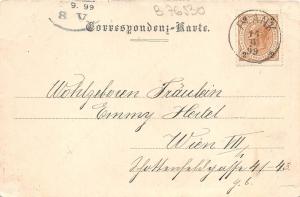 9. 99
8 V
B 76130
Correspondenz-Karte.
99
Wohlgeboren Fräulein
Emmy Hertel
Wien VII
Schottenfeldgasse